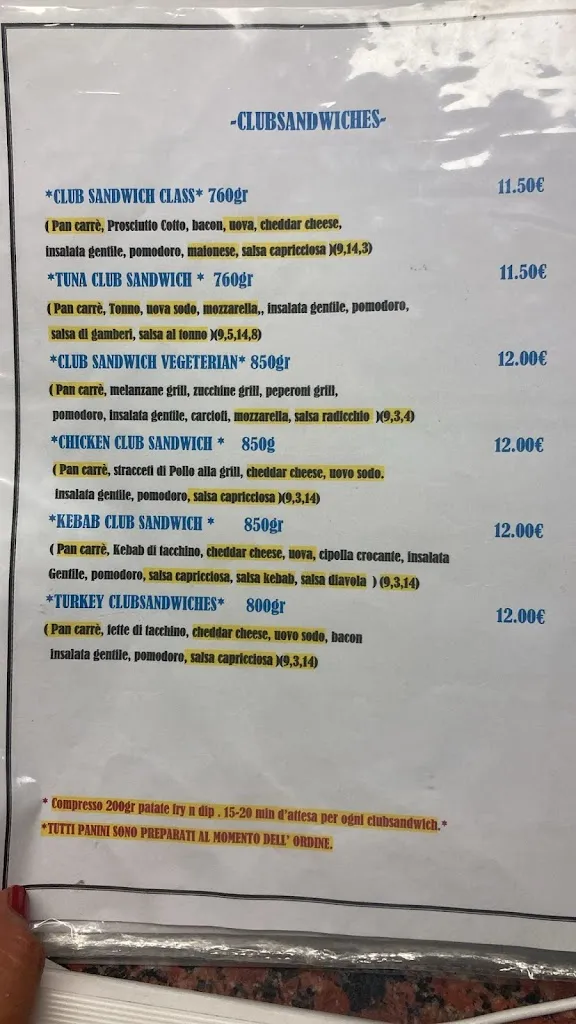 -CLUBSANDWICHES-
*CLUB SANDWICH CLASS* 760gr 11.50€
( Pan carrè, Prosciutto Cotto, bacon, uova, cheddar cheese,
insalata gentile, pomodoro, maionese, salsa capricciosa )(9,14,3)
*TUNA CLUB SANDWICH * 760gr 11.50€
( Pan carrè, Tonno, uova sodo, mozzarella,, insalata gentile, pomodoro,
salsa di gamberi, salsa al tonno )(9,5,14,8)
*CLUB SANDWICH VEGETERIAN* 850gr 12.00€
( Pan carrè, melanzane grill, zucchine grill, peperoni grill,
pomodoro, insalata gentile, carciofi, mozzarella, salsa radicchio )(9,3,4)
*CHICKEN CLUB SANDWICH * 850g 12.00€
( Pan carrè, straccetti di Pollo alla grill, cheddar cheese, uovo sodo.
insalata gentile, pomodoro, salsa capricciosa )(9,3,14)
*KEBAB CLUB SANDWICH * 850gr 12.00€
( Pan carrè, Kebab di tacchino, cheddar cheese, uova, cipolla croccante, insalata
Gentile, pomodoro, salsa capricciosa, salsa kebab, salsa diavola ) (9,3,14)
*TURKEY CLUBSANDWICHES* 800gr 12.00€
( Pan carrè, fette di tacchino, cheddar cheese, uovo sodo, bacon
insalata gentile, pomodoro, salsa capricciosa )(9,3,14)
* Compresso 200gr patate fry n dip . 15-20 min d'attesa per ogni clubsandwich.*
*TUTTI PANINI SONO PREPARATI AL MOMENTO DELL' ORDINE.